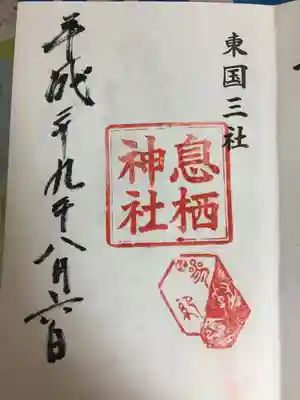 東国三社
息栖
神社
平成二十九年八月六日